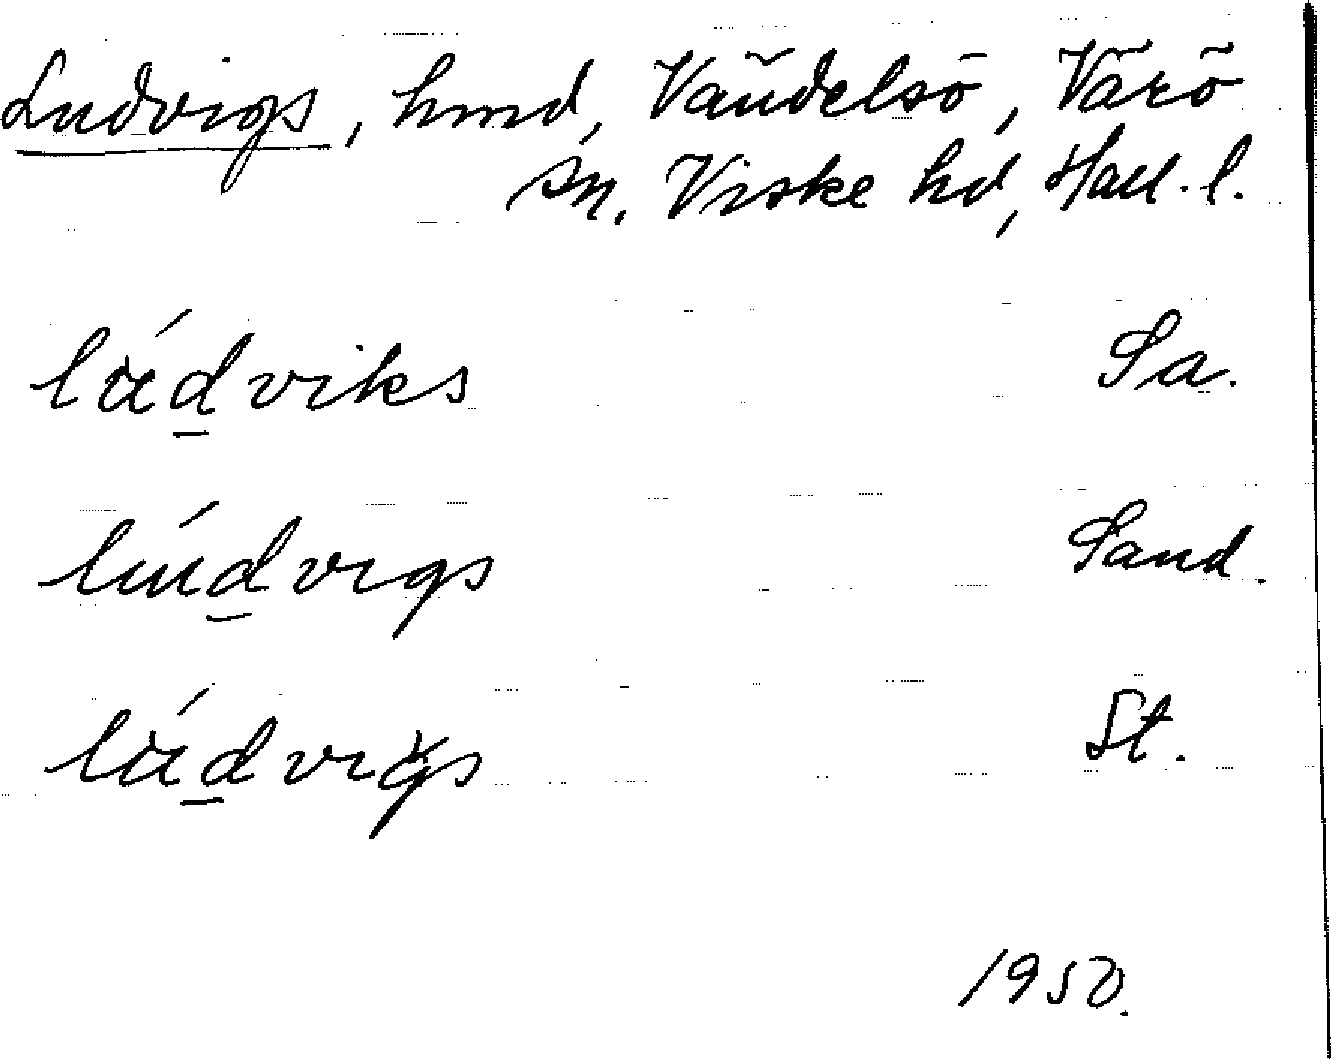 Ludvigs, hmd, Vändelsö, Värö
sn. Viske hd, Hall. l.
lúd̲viks Sa.
lúd̲vigs Sand.
lúd̲vigs St.
1950.